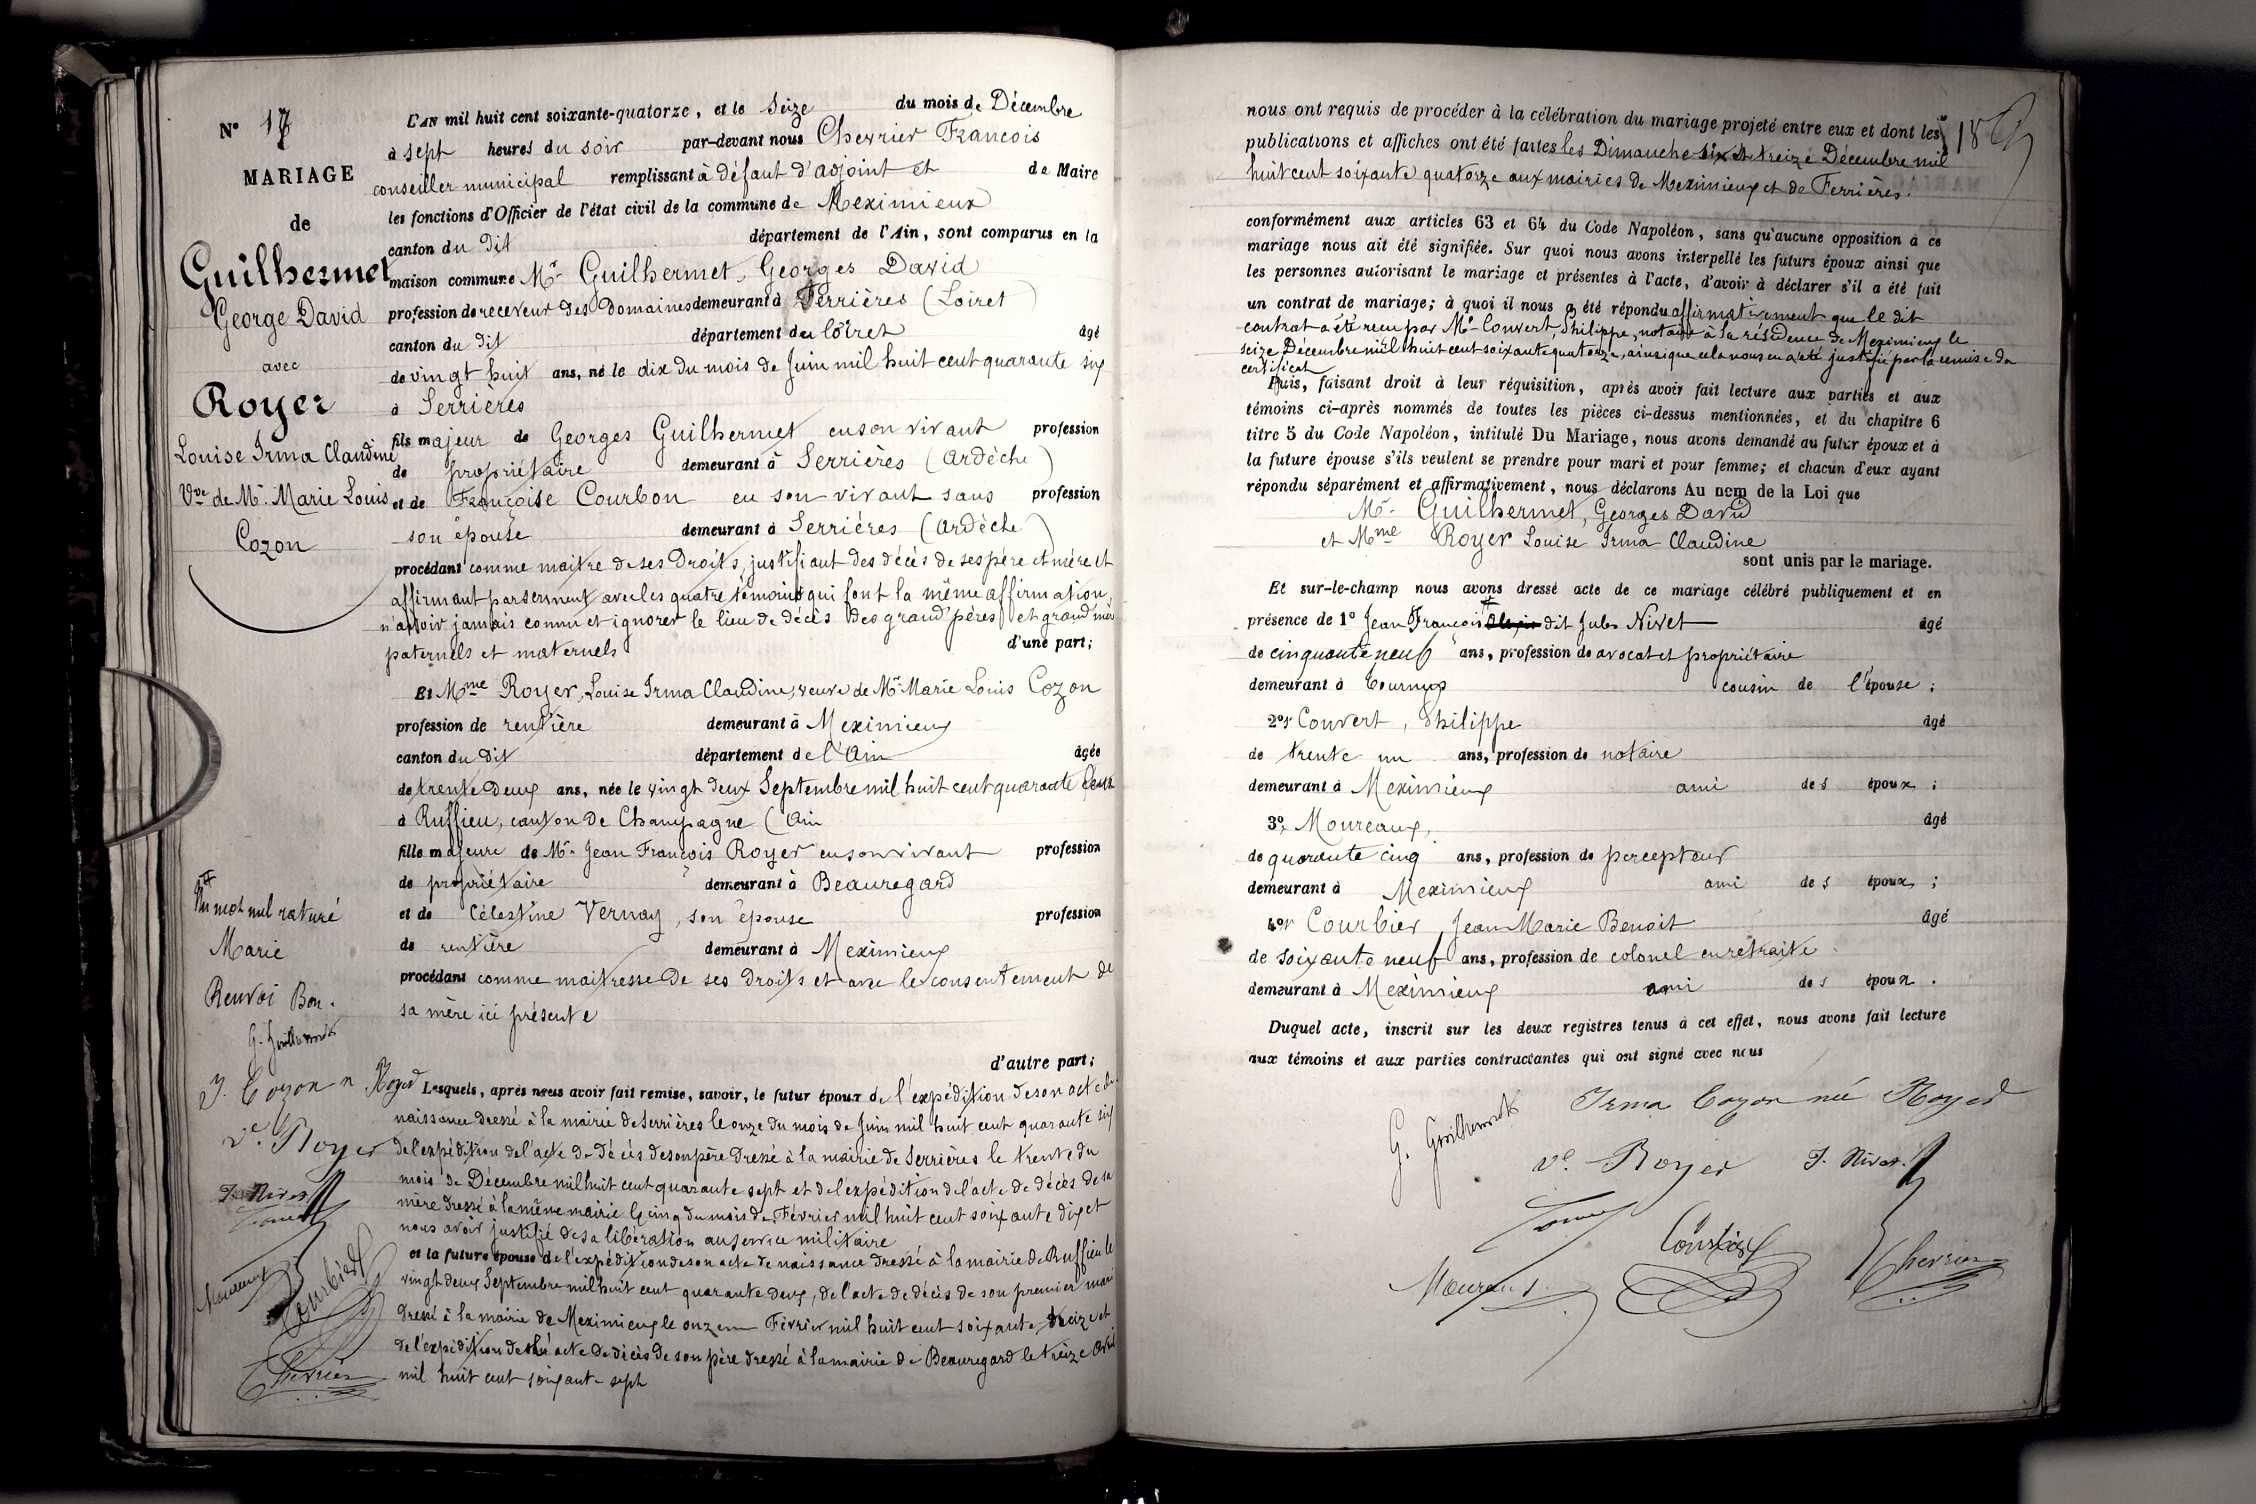 N° 17
MARIAGE
de
Guilhermet
George David
avec
Royer
Louise Irma Claudine
Vve de Mr. Marie Louis
Cozon
L'AN mil huit cent soixante-quatorze, et le Seize du mois de Décembre
à sept heures du soir par-devant nous Chevrier Francois
conseiller municipal remplissant à défaut d'adjoint et de Maire
les fonctions d'Officier de l'état civil de la commune de Meximieux
canton du dit département de l'Ain, sont comparus en la
maison commune Mr Guilhermet, Georges David
profession de receveur des Domaines demeurant à Ferrières (Loiret)
canton du dit département du Loiret âgé
de vingt huit ans, né le dix du mois de Juin mil huit cent quarante six
à Serrières
fils majeur de Georges Guilhermet en son vivant profession
de propriétaire demeurant à Serrières (Ardèche)
et de Françoise Courbon en son vivant sans profession
son épouse demeurant à Serrières (Ardèche)
procédant comme maitre de ses Droits, justifiant des décès de ses père et mère et
affirmant par serment avec les quatre témoins qui font la même affirmation,
n'avoir jamais connu et ignorer le lieu de décès des grand'pères et grand'mères
paternels et maternels d'une part;
Et Mme Royer, Louise Irma Claudine, veuve de Mr. Marie Louis Cozon
profession de rentière demeurant à Meximieux
canton du dit département de l'Ain âgée
de trente deux ans, née le vingt deux Septembre mil huit cent quarante deux
à Ruffieu, canton de Champagne (Ain
fille majeure de Mr. Jean François Royer en son vivant profession
de propriétaire demeurant à Beauregard
et de Célestine Vernay, son épouse profession
de rentière demeurant à Meximieux
procédant comme maitresse de ses droits et avec le consentement de
sa mère ici présente
d'autre part;
Un mot nul raturé
Marie
Renvoi Bon.
G. Guilhermet
I. Cozon n Royer
Ve. Royer
J. Nivet
Moureaux
Courbier
Chevrier
Lesquels, après nous avoir fait remise, savoir, le futur époux de l'expédition de son acte de
naissance dressé à la mairie de Serrières le onze du mois de Juin mil huit cent quarante six
de l'expédition de l'acte de décès de son père dressé à la mairie de Serrières le trente du
mois de Décembre mil huit cent quarante sept et de l'expédition de l'acte de décès de sa
mère dressé à la même mairie le cinq du mois de Février mil huit cent soixante dix et
nous avoir justifié de sa libération au service militaire
et la future épouse de l'expédition de son acte de naissance dressé à la mairie de Ruffieu le
vingt deux Septembre mil huit cent quarante deux, de l'acte de décès de son premier mari
dressé à la mairie de Meximieux le onze Février mil huit cent soixante treize et
de l'expédition de l'acte de décès de son père dressé à la mairie de Beauregard le treize Avril
mil huit cent soixante sept
18
nous ont requis de procéder à la célébration du mariage projeté entre eux et dont les
publications et affiches ont été faites les Dimanche six et treize Décembre mil
huit cent soixante quatorze aux mairies de Meximieux et de Ferrières.
conformément aux articles 63 et 64 du Code Napoléon, sans qu'aucune opposition à ce
mariage nous ait été signifiée. Sur quoi nous avons interpellé les futurs époux ainsi que
les personnes autorisant le mariage et présentes à l'acte, d'avoir à déclarer s'il a été fait
un contrat de mariage; à quoi il nous a été répondu affirmativement que le dit
contrat a été reçu par Me. Convert, Philippe, notaire à la résidence de Meximieux le
seize Décembre mil huit cent soixante quatorze, ainsi que cela nous en a été justifié par la remise du
certificat
Puis, faisant droit à leur réquisition, après avoir fait lecture aux parties et aux
témoins ci-après nommés de toutes les pièces ci-dessus mentionnées, et du chapitre 6
titre 5 du Code Napoléon, intitulé Du Mariage, nous avons demandé au futur époux et à
la future épouse s'ils veulent se prendre pour mari et pour femme; et chacun d'eux ayant
répondu séparément et affirmativement, nous déclarons Au nom de la Loi que
Mr. Guilhermet, Georges David
et Mme Royer Louise Irma Claudine
sont unis par le mariage.
Et sur-le-champ nous avons dressé acte de ce mariage célébré publiquement et en
présence de 1° Jean François dit Jules Nivet âgé
de cinquante neuf ans, profession de avocat et propriétaire
demeurant à Tournus cousin de l'épouse;
2° Convert, Philippe âgé
de trente un ans, profession de notaire
demeurant à Meximieux ami des époux;
3°. Moureaux, âgé
de quarante cinq ans, profession de percepteur
demeurant à Meximieux ami des époux;
4° Courbier, Jean Marie Benoit âgé
de soixante neuf ans, profession de colonel en retraite
demeurant à Meximieux ami des époux.
Duquel acte, inscrit sur les deux registres tenus à cet effet, nous avons fait lecture
aux témoins et aux parties contractantes qui ont signé avec nous
G. Guilhermet Irma Cozon née Royer
Ve. Royer J. Nivet
Courbier
Moureaux Chevrier